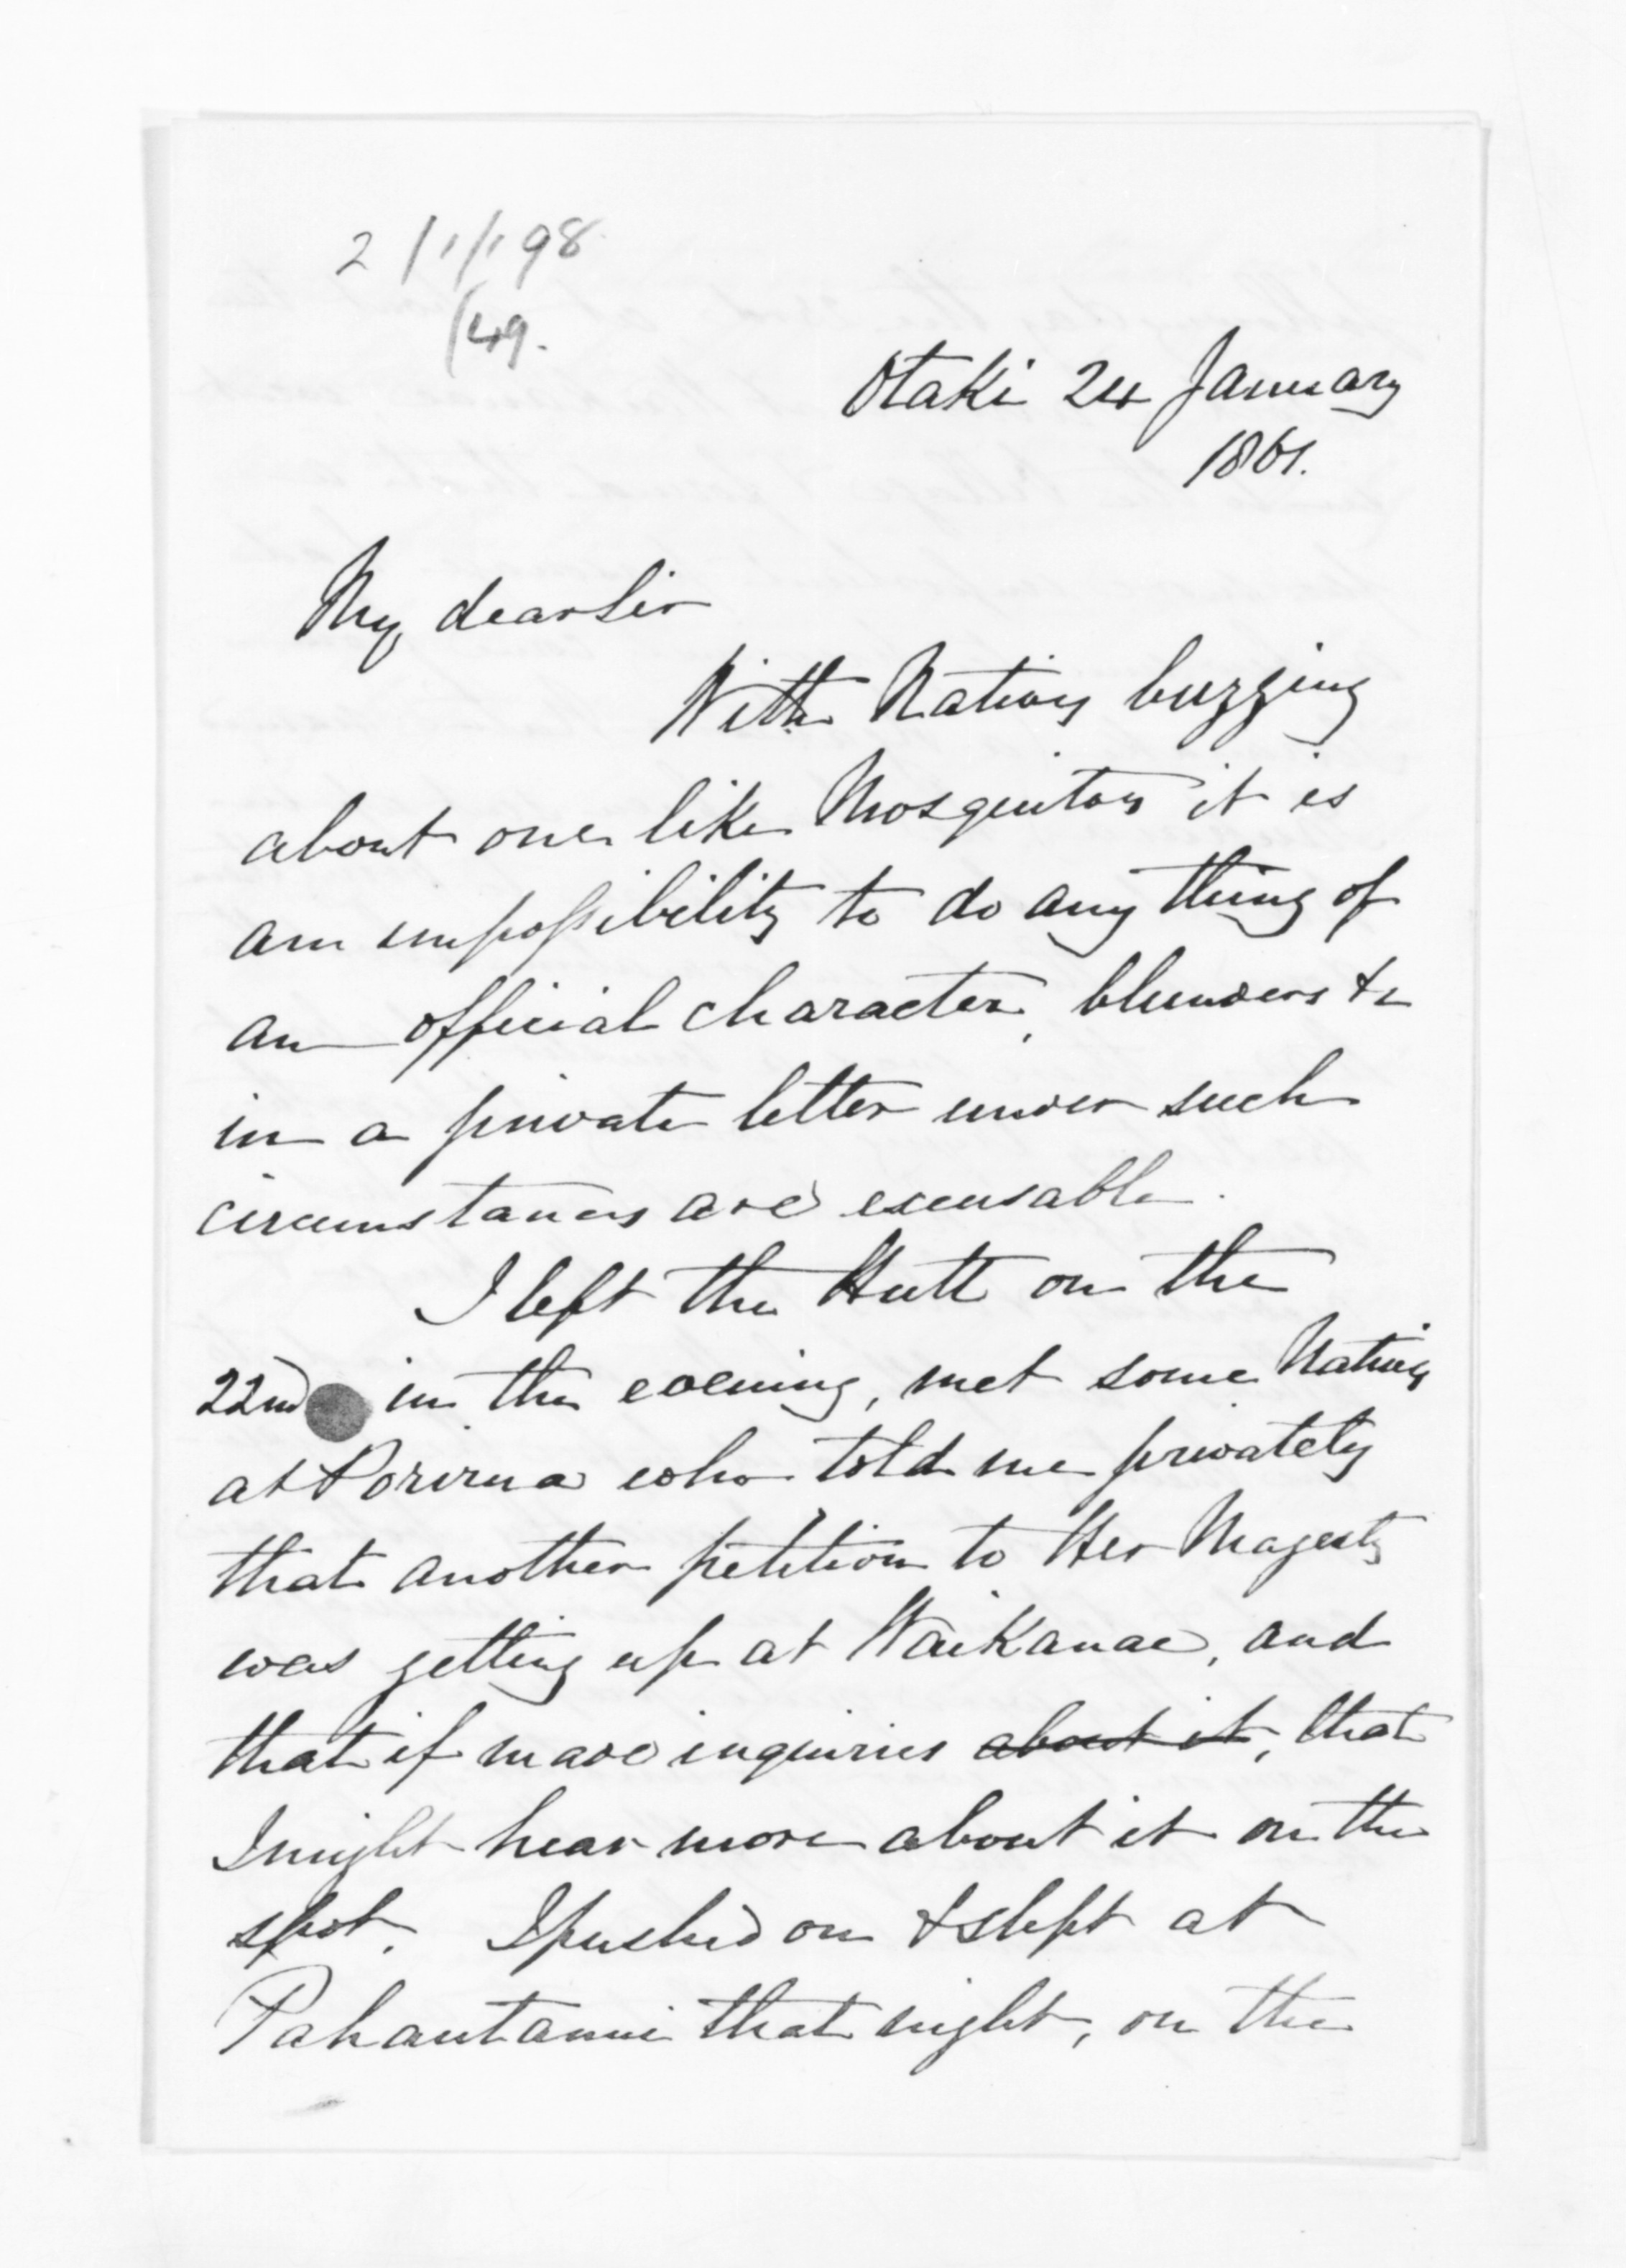 2/1/198
/49.
Otaki 24 January
1861.
My dear Sir
With Natives buzzing
about one like Mosquitoes it is
an impossibility to do any thing of
an official character, blunders &c
in a private letter under such
circumstances are excusable.
I left the Hutt on the
22nd in the evening, met some Natives
at Porirua who told me privately
that another petition to Her Majesty
was getting up at Waikanae, and
that if made inquiries about it, that
I might hear more about it on the
spot. I pushed on & slept at
Pahautanui that night, on the